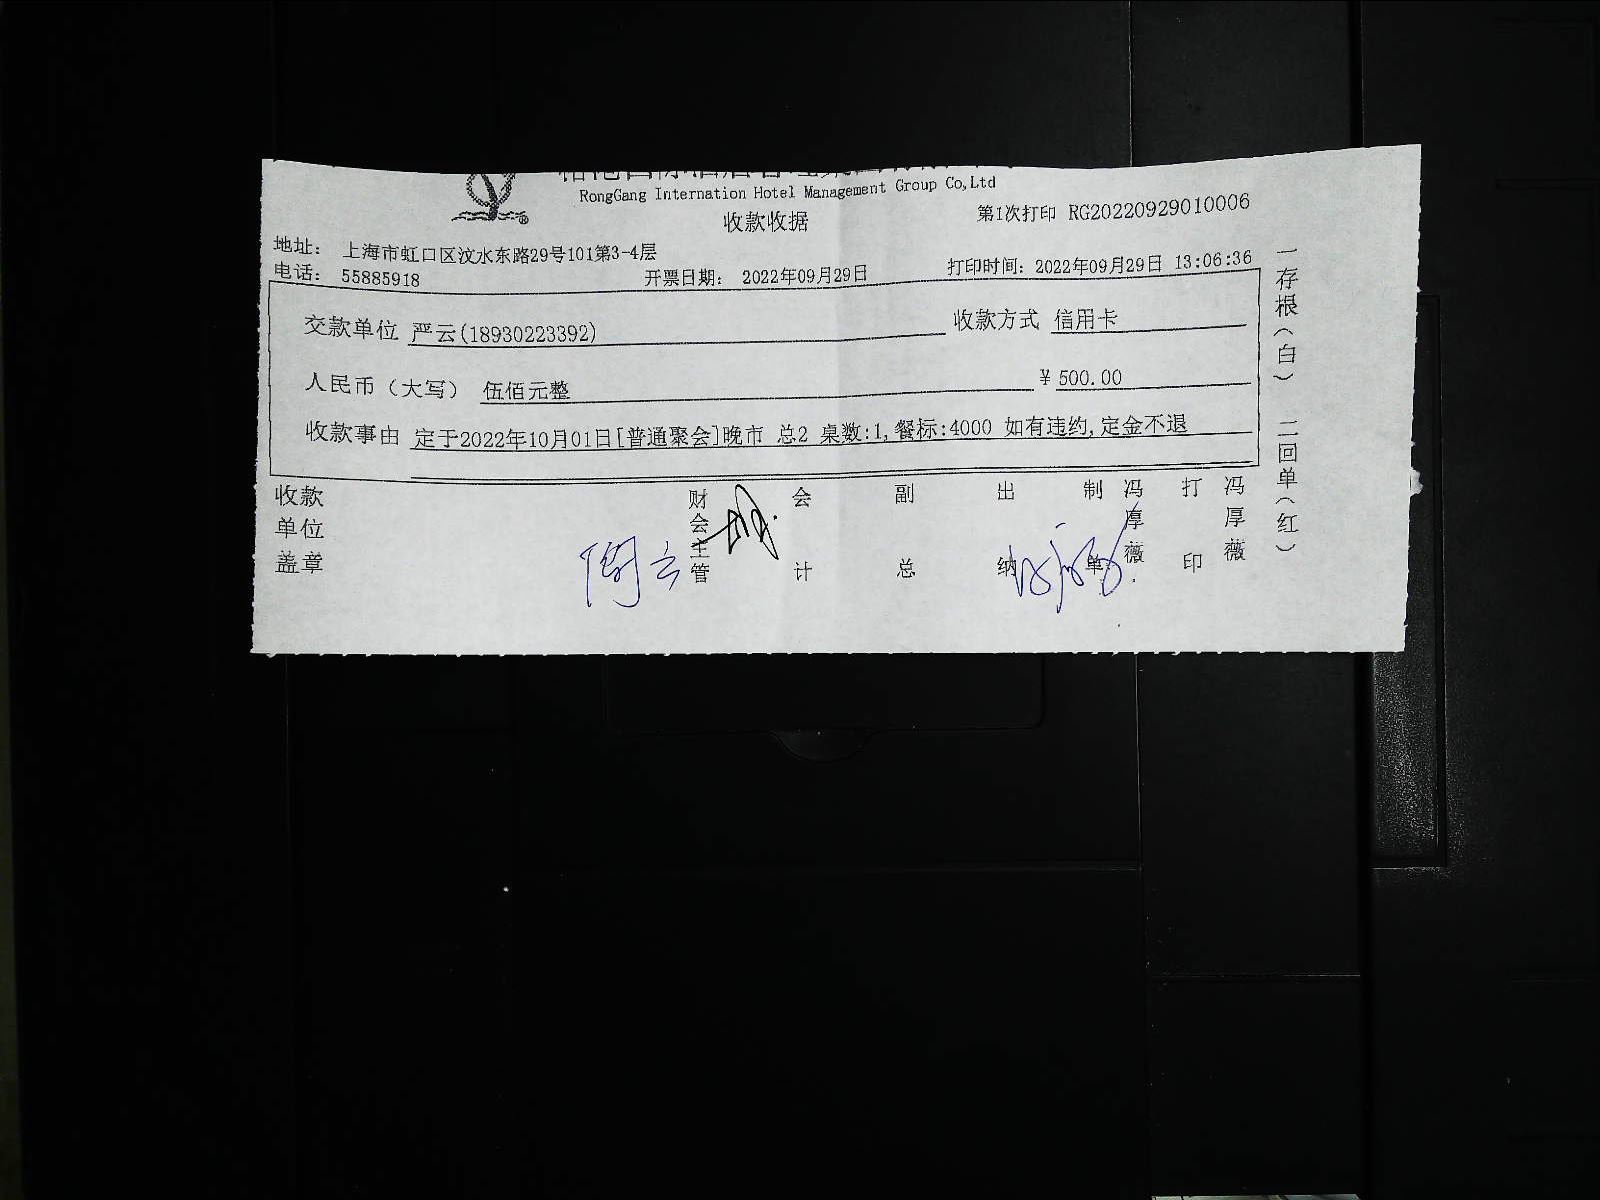 RongGang Internation Hotel Management Group Co,Ltd
收款收据
第1次打印 RG20220929010006
地址: 上海市虹口区汶水东路29号101第3-4层
电话: 55885918 开票日期: 2022年09月29日 打印时间: 2022年09月29日 13:06:36
交款单位 严云(18930223392) 收款方式 信用卡
人民币（大写） 伍佰元整 ¥500.00
收款事由 定于2022年10月01日[普通聚会]晚市 总2 桌数:1,餐标:4000 如有违约,定金不退
收款单位盖章 财会主管 会计 副总 出纳 制单 冯厚薇 打印 冯厚薇
一存根(白) 二回单(红)